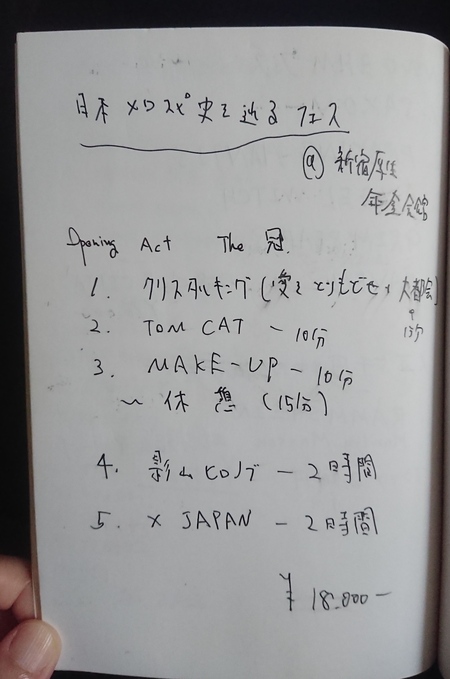 日本メロスピ史を辿るフェス
@ 新宿厚生
年金会館
Opening Act The 冠.
1. クリスタルキング (愛をとりもどせ、大都会)
13分
2. TOM CAT ー 10分
3. MAKE-UP ー 10分
〜 休憩 (15分)
4. 影山ヒロノブ ー 2時間
5. X JAPAN ー 2時間
¥ 18.000ー